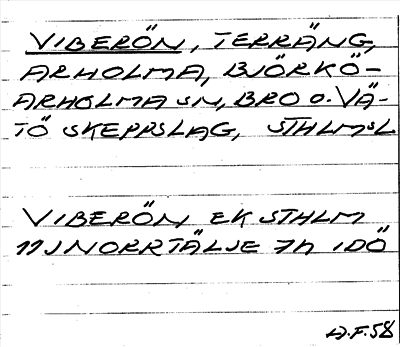 VIBERÖN, TERRÄNG,
ARHOLMA, BJÖRKÖ-
ARHOLMA SN, BRO O. VÄ-
TÖ SKEPPSLAG, STHLMSL
VIBERÖN EK STHLM
11J NORRTÄLJE 7h IDÖ